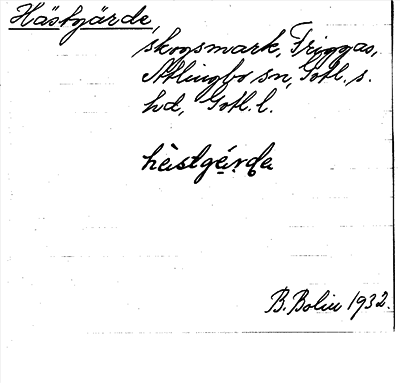 Hästgärde,
skogsmark, Friggas,
Atlingbo sn, Gotl. s.
hd, Gotl. l.
hèstgę́rda
B. Bolin 1932.